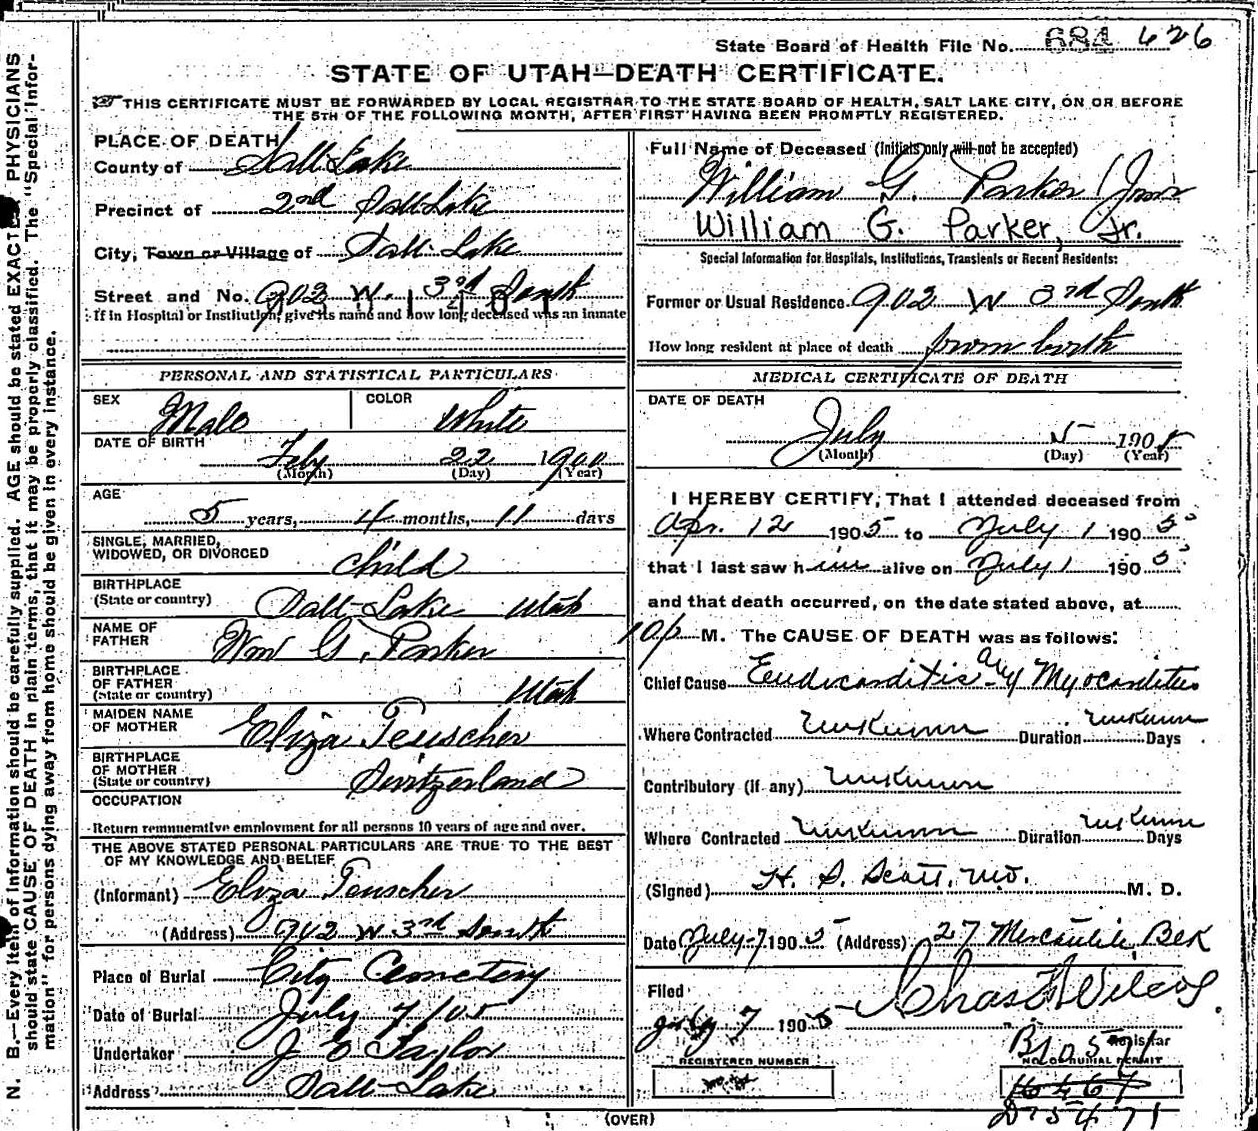 State Board of Health File No. 684 626
STATE OF UTAH—DEATH CERTIFICATE.
THIS CERTIFICATE MUST BE FORWARDED BY LOCAL REGISTRAR TO THE STATE BOARD OF HEALTH, SALT LAKE CITY, ON OR BEFORE
THE 5TH OF THE FOLLOWING MONTH, AFTER FIRST HAVING BEEN PROMPTLY REGISTERED.
N. B.—Every item of Information should be carefully supplied. AGE should be stated EXACTLY PHYSICIANS
should state CAUSE OF DEATH in plain terms, that it may be properly classified. The "Special Infor-
mation" for persons dying away from home should be given in every instance.
PLACE OF DEATH
County of Salt Lake
Precinct of 2nd Salt Lake
City, Town or Village of Salt Lake
Street and No. 902 W. 3rd South
If in Hospital or Institution, give its name and how long deceased was an inmate
PERSONAL AND STATISTICAL PARTICULARS
SEX Male COLOR White
DATE OF BIRTH Feby 22 1900
(Month) (Day) (Year)
AGE
5 years, 4 months, 11 days
SINGLE, MARRIED,
WIDOWED, OR DIVORCED child
BIRTHPLACE
(State or country) Salt Lake Utah
NAME OF
FATHER Wm G. Parker
BIRTHPLACE
OF FATHER
(State or country) Utah
MAIDEN NAME
OF MOTHER Eliza Teuscher
BIRTHPLACE
OF MOTHER
(State or country) Switzerland
OCCUPATION
Return remunerative employment for all persons 10 years of age and over.
THE ABOVE STATED PERSONAL PARTICULARS ARE TRUE TO THE BEST
OF MY KNOWLEDGE AND BELIEF
(Informant) Eliza Teuscher
(Address) 902 W 3rd South
Place of Burial City Cemetery
Date of Burial July 7/05
Undertaker J E Taylor
Address Salt Lake
Full Name of Deceased (Initials only will not be accepted)
William G. Parker (Junr
William G. Parker, Jr.
Special Information for Hospitals, Institutions, Transients or Recent Residents:
Former or Usual Residence 902 W 3rd South
How long resident at place of death from birth
MEDICAL CERTIFICATE OF DEATH
DATE OF DEATH
July 5 1905
(Month) (Day) (Year)
I HEREBY CERTIFY, That I attended deceased from
Apr. 12 1905 to July 1 1905
that I last saw him alive on July 1 1905
and that death occurred, on the date stated above, at
10 p M. The CAUSE OF DEATH was as follows:
Chief Cause Endocarditis and Myocarditis
Where Contracted unknown Duration unknown Days
Contributory (if any) unknown
Where Contracted unknown Duration unknown Days
(Signed) H. S. Scott, M.D. M. D.
Date July 7 1905 (Address) 27 Mercantile Blk
Filed
July 7 1905 Chas F Wilcox
Registrar
REGISTERED NUMBER NO. OF BURIAL PERMIT
(OVER)